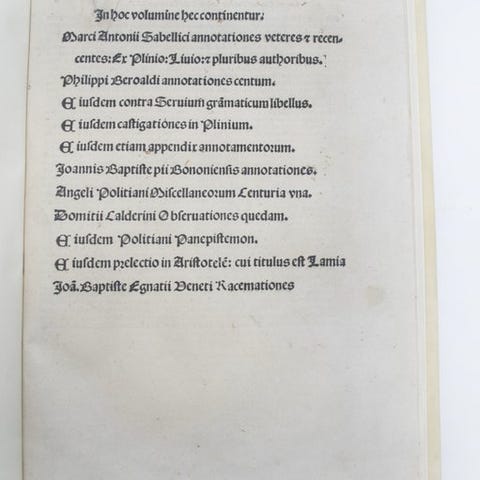 In hoc volumine hec continentur.
Marci Antonii Sabellici annotationes veteres ⁊ recen-
centes: Ex Plinio: Liuio: ⁊ pluribus authoribus.
Philippi Beroaldi annotationes centum.
Eiusdem contra Seruium grāmaticum libellus.
Eiusdem castigationes in Plinium.
Eiusdem etiam appendix annotamentorum.
Joannis Baptiste pii Bononiensis annotationes.
Angeli Politiani Miscellaneorum Centuria vna.
Domitii Calderini Obseruationes quedam.
Eiusdem Politiani Panepistemon.
Eiusdem prelectio in Aristotelē: cui titulus est Lamia
Joā. Baptiste Egnatii Veneti Racemationes